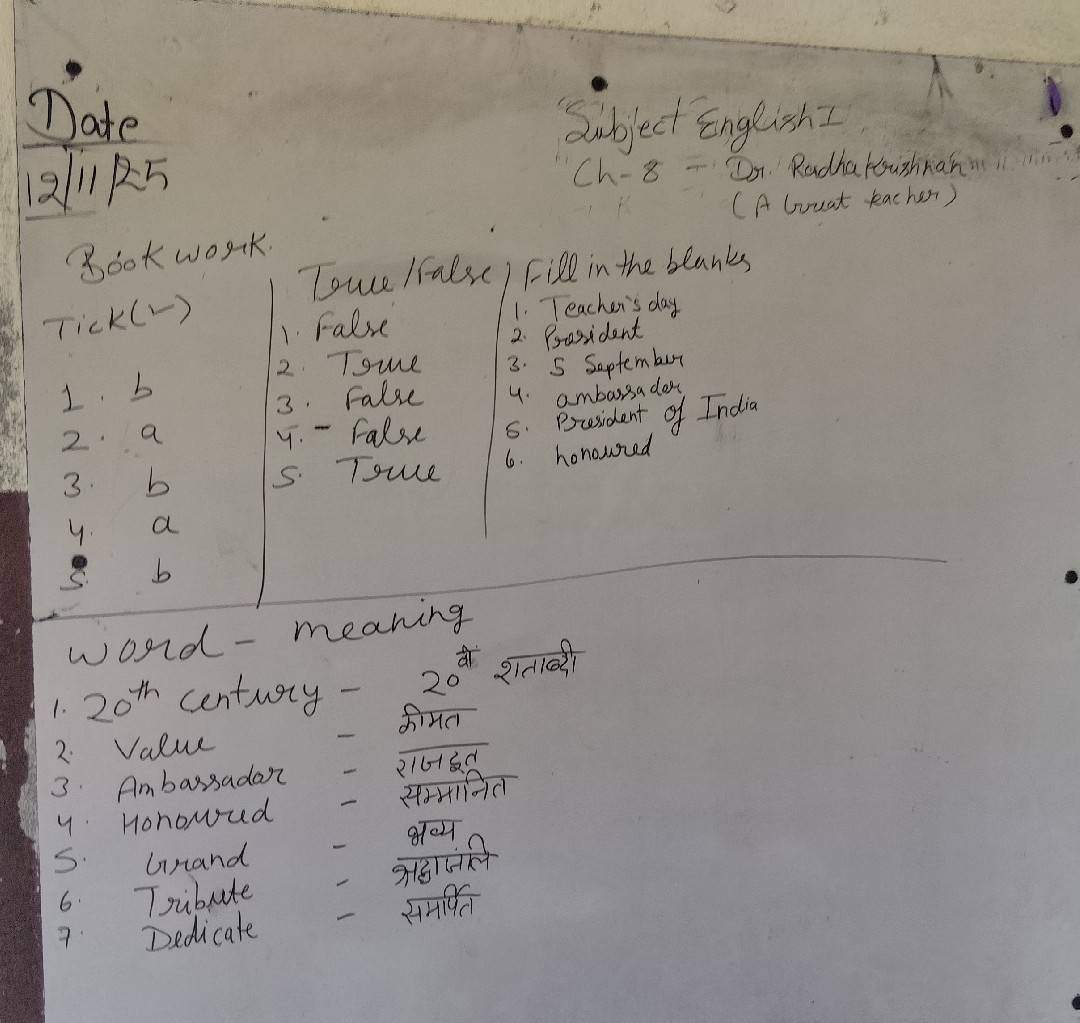 Date
12/11/25
Subject English I
Ch-8 = Dr. Radhakrishnan
(A Great teacher)
Book work.
Tick(✓)
1. b
2. a
3. b
4. a
5. b
True/False
1. False
2. True
3. False
4. - False
5. True
Fill in the blanks
1. Teacher's day
2. President
3. 5 September
4. ambassador
5. President of India
6. honoured
word - meaning
1. 20th century - 20वी शताब्दी
2. Value - कीमत
3. Ambassador - राजदूत
4. Honoured - सम्मानित
5. Grand - भव्य
6. Tribute - श्रद्धांजलि
7. Dedicate - समर्पित